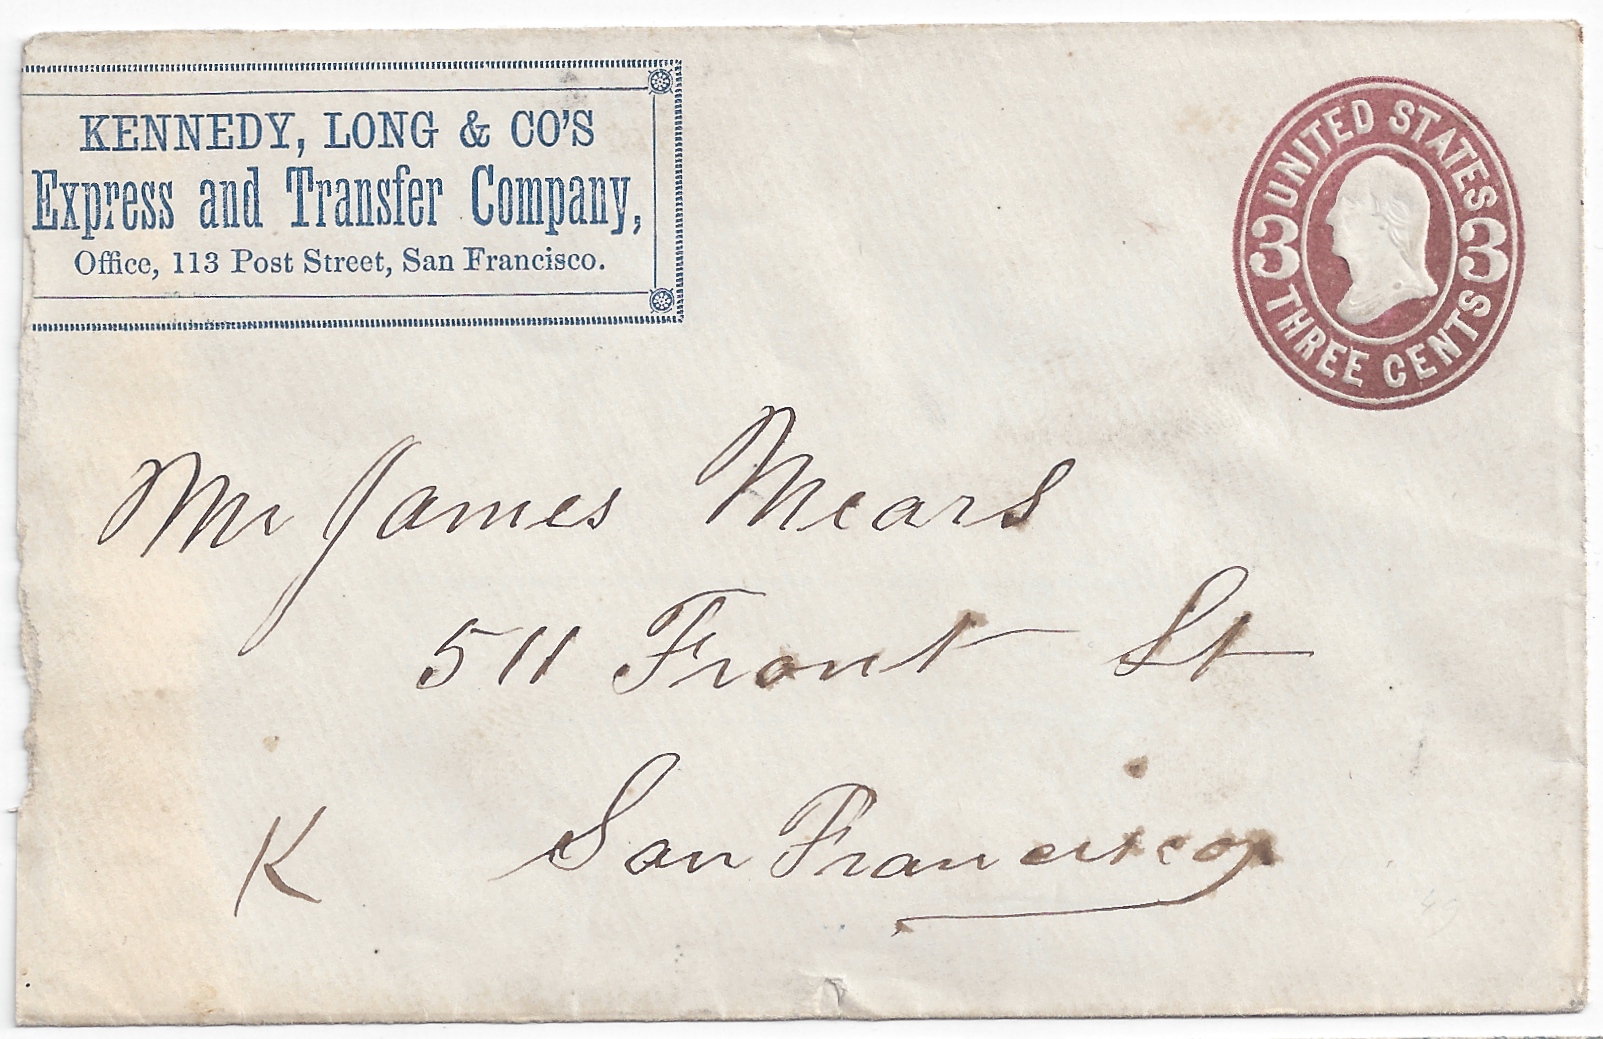 KENNEDY, LONG & CO'S
Express and Transfer Company,
Office, 113 Post Street, San Francisco.
UNITED STATES
3 3
THREE CENTS
Mr James Mears
511 Front St
San Francisco
K
49